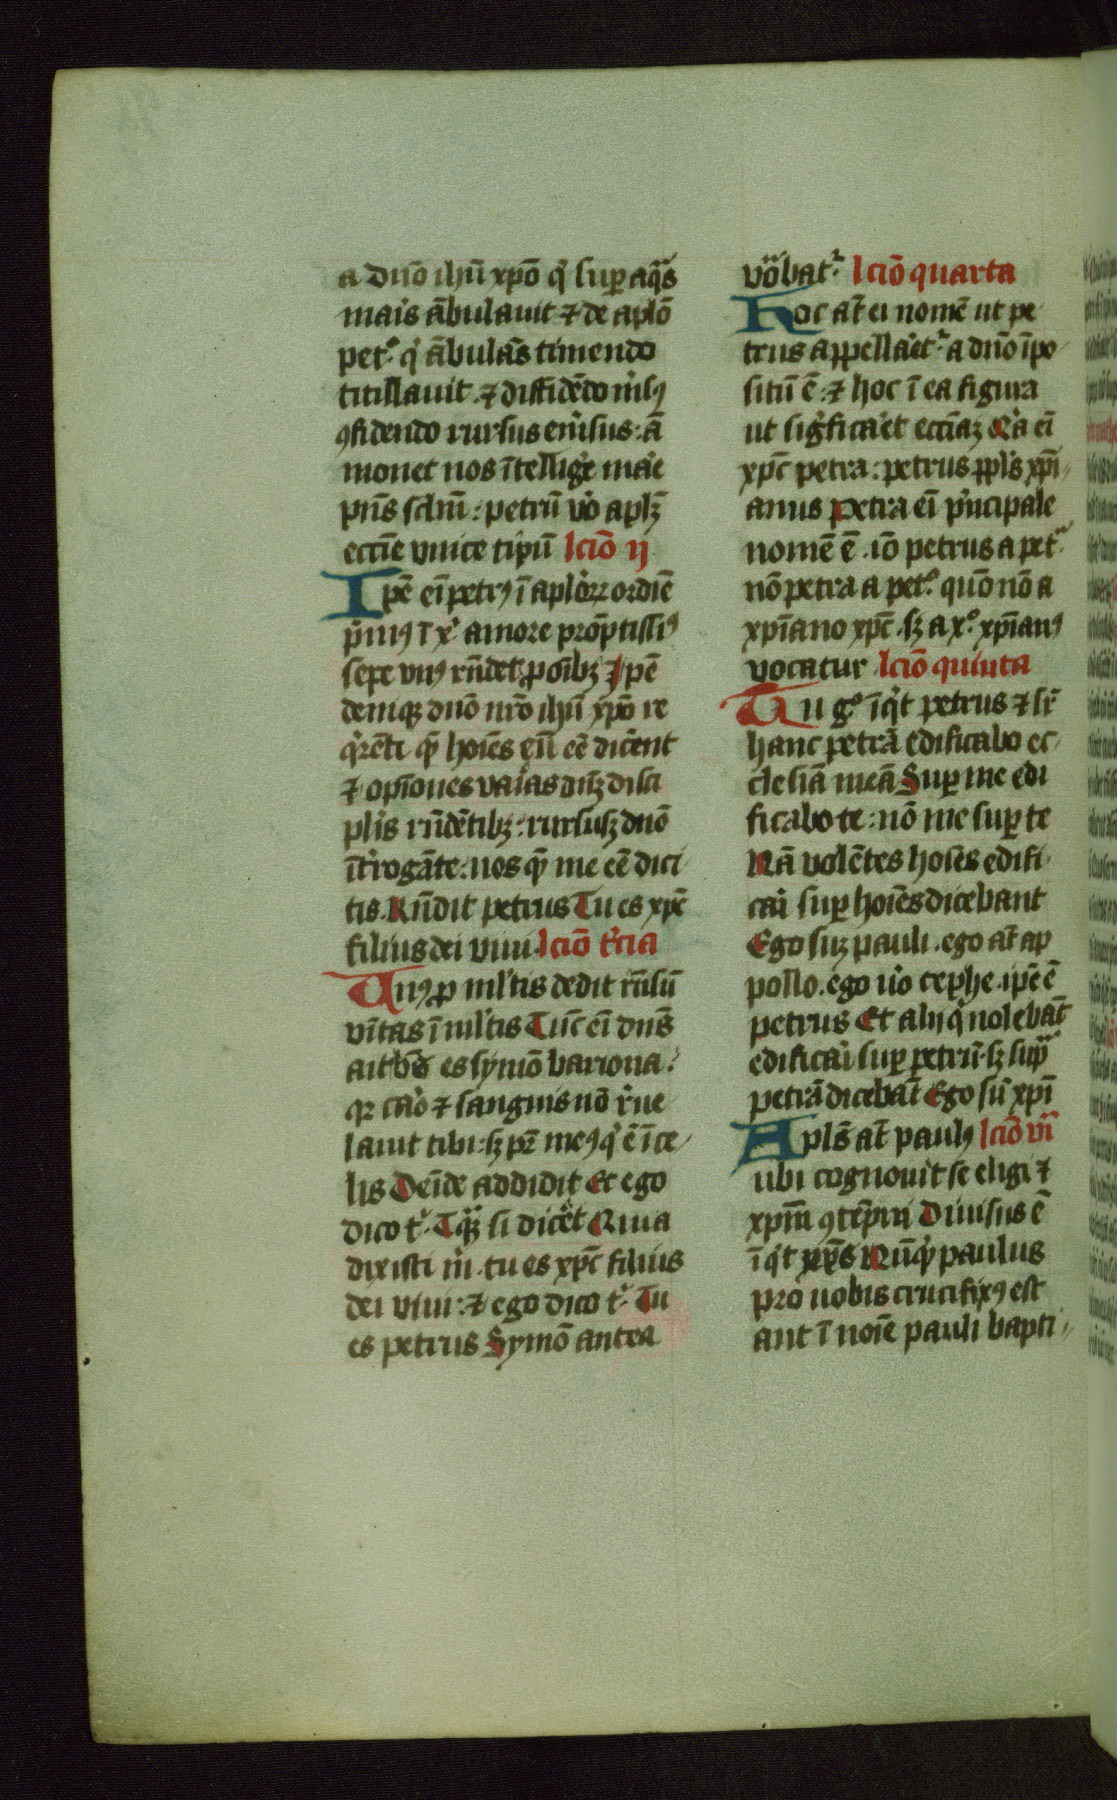 a dnō ihū xpō q̇ suꝑ aq̄s
maīs ābulauit ⁊ de aplō
pet᷒ q̇ ābulās timendo
titillauit ⁊ diffidēdo m̄sꝰ
ꝯfidendo rursus em̄sus: ā
monet nos ītellig̾e ma̾e
pn̄s sclm̄: petrū v̊o aplꝫ
eccīe vnice tipū lcīo ij
Ipē eī petrꝰ ī aplo̾ꝝ ordīe
p̄mꝰ ⁊ ī xͥ amore prōptissiꝰ
sepe vnꝰ rn̄det ꝓ oībꝫ Ipē
demqꝫ dnō nr̄o ihū xpō re
q̾rēti q̄ hoīes eū eē dic̾ent
⁊ opīones vaīas diūꝫ disci
plis rn̄dētibꝫ: rursusꝫ dnō
īt̾rogāte: uos q̄ me eē dici
tis Rn̄dit petrus Tu es xpē
filius dei viui lcīo t̾cia
Vnꝰ ꝓ ml̾tis dedit rn̄sū
vnītas ī ml̾tis Tūc eī dn̄s
ait bt̄s es symō bariona:
qꝛ ca̾o ⁊ sanguis nō r̾ue
lauit tibi: sꝫ pr̄ meꝰ q̇ ē ī ce
lis Deīde addidit Et ego
dico tͥ Tq̄ꝫ si dic̾et Quia
dixisti m̊ tu es xpc̄ filius
dei viui: ⁊ ego dico tͥ Tu
es petrus Symō antea
vo̅bat᷑ lcīo quarta
Hoc at̄ ei nomē ut pe
trus appella̾et᷑ a dnō īpo
situ ē: ⁊ hoc ī ea figura
ut sigͥfica̾et eccīaꝫ Q̾a eī
xpc̄ petra: petrus ppl̾s xpī
anus Petra eī p̾ncipale
nomē ē iō petrus a petͣ
nō petra a pet᷒ quō nō a
xpīano xpc̄ sꝫ a x᷒ xpīanꝰ
vocatur lcīo quinta
Tu g᷒ īq̾t petrus ⁊ sꝛ̄
hanc petrā edificabo ec
clesiā meā Suꝑ me edi
ficabo te: nō me suꝑ te
Nā volētes hoīes edifi
cai̾ suꝑ hoīes dicebant
Ego suꝫ pauli. ego at̄ ap
pollo. ego u̇o cephe. ipē ē
petrus Et alij q̇ nolebāt
edificai̾ suꝑ petrū sꝫ supͣ
petrā dicebāt Ego sū xpī
Apl̄s at̄ paulꝰ lcīo vi̅
ubi cognouit se eligi ⁊
xpm̄ ꝯtēpni Diuisus ē
īq̾t xp̄s Nūq̾ paulus
pro uobis crucifixꝰ est
aut ī noīe pauli bapti